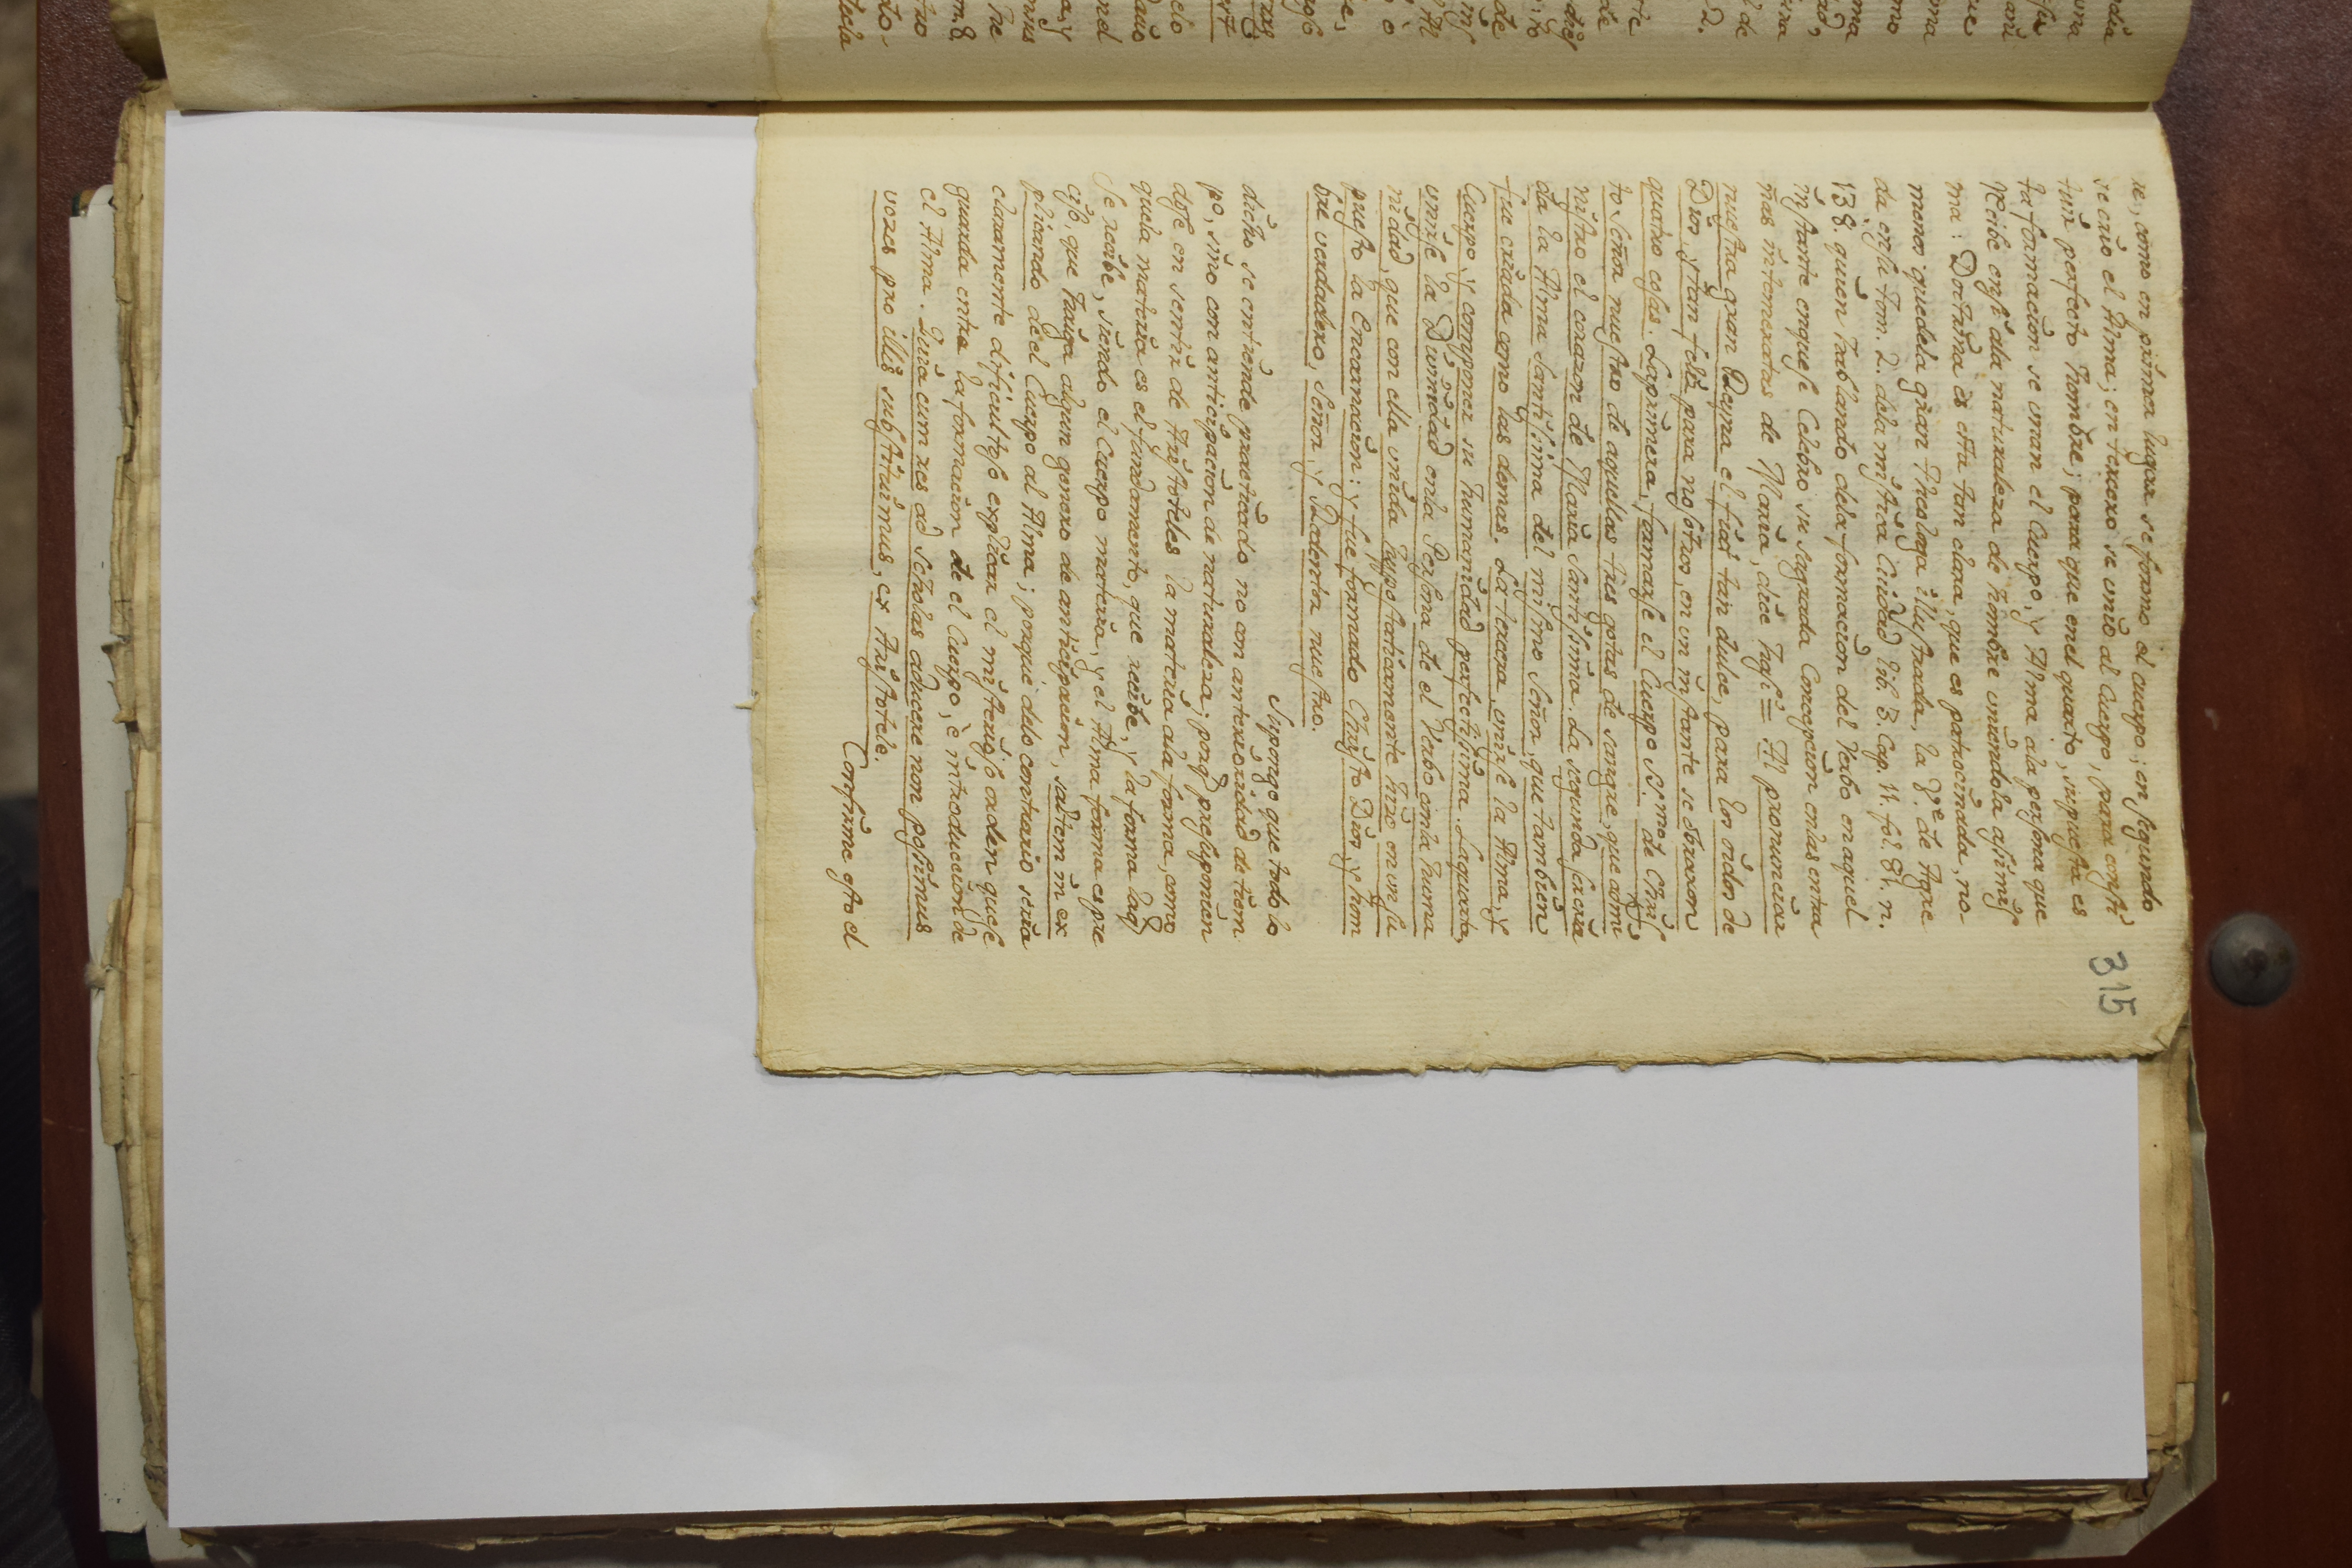 315
re, como en primer lugar se formo el cuerpo; en segundo
se crio el Alma; en tercero se unio al Cuerpo, para consti
tuir perfecto hombre; para que en el quarto, supuesta es
ta formacion se unan el Cuerpo, y Alma ala persona que
recibe en si ala naturaleza de hombre uniendola assi mis
ma: Doctrina es esta tan clara, que es patrocinada, no-
menos que dela gran Theologa illustrada, la V.e de Agre
da en su tom. 2. dela mistica Ciudad lib. 3. Cap. 11. fol. 81. n.
138. quien hablando dela formacion del Verbo en aquel
instante en que se Celebro su sagrada Concepcion en las entra
ñas intemeratas de Maria, dice assi = Al pronunciar
nuestra gran Reyna el fiat tan dulce, para los oidos de
Dios, y tan feliz para nosotros, en un instante se obraron
quatro cosas. La primera, formarse el Cuerpo S.mo de Chris
to Señor nuestro de aquellas tres gotas de sangre, que admi
nistro el corazon de Maria Santissima. La segunda, ser cria
da la Alma santissima del mismo Señor, que tambien
fue criada como las demas. La tercera, unirse la Alma, y
Cuerpo, y componer su humanidad perfectissima. La quarta,
unirse la Divinidad en la Persona de el Verbo con la huma
nidad, que con ella unida hypostaticamente hizo en un su
puesto la Encarnacion: y fue formado Christo Dios, y hom
bre verdadero, Señor, y Redentor nuestro.
Supongo, que todo lo
dicho se entiende practicado no con anterioridad de tiem
po, sino con anticipacion de naturaleza; porq presuponien
dose en sentir de Aristoteles la materia ala forma, como
que la materia es el fundamento, que recibe, y la forma la q
se recibe, siendo el Cuerpo materia, y el Alma forma es pre
ciso, que haiga algun genero de anticipacion, saltem in ex
plicando de el Cuerpo al Alma; porque delo contrario seria
claramente dificultoso explicar el misterioso orden que se
guarda entre la formacion de el Cuerpo, è introduccion de
el Alma. Quia cum res ad scholas adducere non possimus
voces pro illis substituimus, ex Aristotele.
Confirme esto el